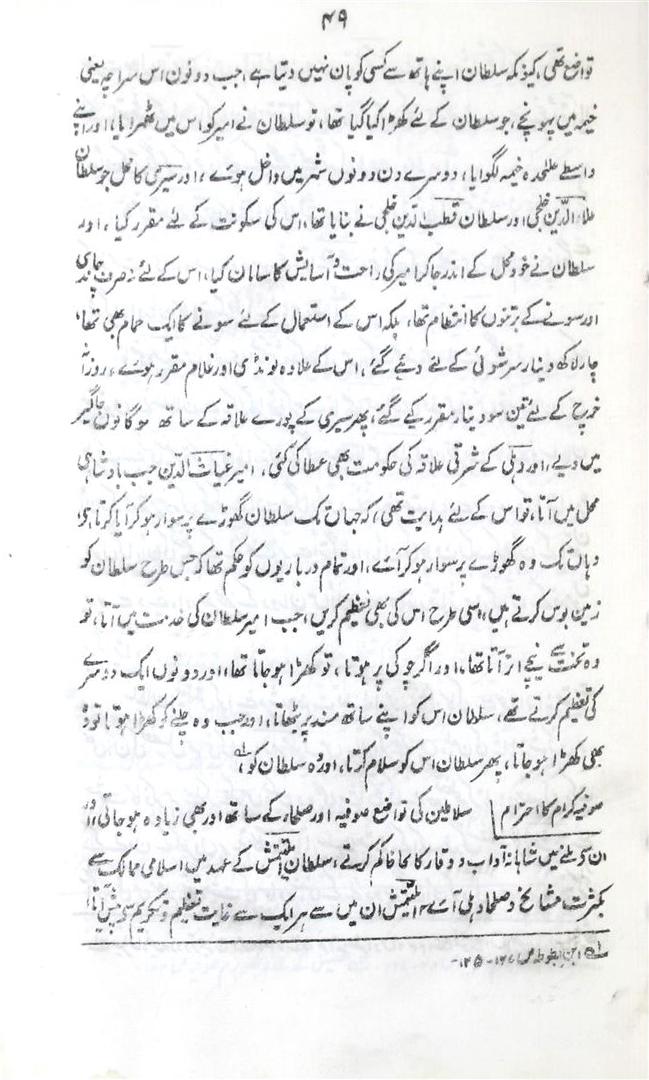 ۴۹
تواضع تھی، کیونکہ سلطان اپنے ہاتھ سے کسی کو پان نہیں دیتا ہے، جب دونوں اس سراچہ یعنی
خیمہ میں پہونچے، جو سلطان کے لئے کھڑا کیا گیا تھا، تو سلطان نے امیر کو اس میں ٹھہرایا، اور اپنے
واسطے علٰحدہ خیمہ لگوایا، دوسرے دن دونوں شہر میں داخل ہوئے، اور سیری کا محل جو سلطان
علاء الدین خلجی اور سلطان قطب الدین خلجی نے بنایا تھا، اس کی سکونت کے لئے مقرر کیا، اور
سلطان نے خود محل کے اندر جا کر امیر کی راحت و آسایش کا سامان کیا، اس کے لئے نہ صرف چاندی
اور سونے کے برتنوں کا انتظام تھا، بلکہ اس کے استعمال کے لئے سونے کا ایک حمام بھی تھا،
چار لاکھ دینار سر شوئی کے لئے دیئے گئے، اس کے علاوہ لونڈی اور غلام مقرر ہوئے، روزانہ
خرچ کے لئے تین سو دینار مقرر کیے گئے، پھر سیری کے پورے علاقہ کے ساتھ سو گانوں جاگیر
میں دیے، اور دہلی کے شرقی علاقہ کی حکومت بھی عطا کی گئی، امیر غیاث الدین جب بادشاہی
محل میں آتا، تو اس کے لئے ہدایت تھی، کہ جہاں تک سلطان گھوڑے پر سوار ہو کر آیا کرتا ہی
وہاں تک وہ گھوڑے پر سوار ہو کر آئے، اور تمام درباریوں کو حکم تھا کہ جس طرح سلطان کو
زمین بوس کرتے ہیں، اسی طرح اس کی بھی تعظیم کریں، جب امیر سلطان کی خدمت میں آتا، تو
وہ تخت سے نیچے اتر آتا تھا، اور اگر چوکی پر ہوتا، تو کھڑا ہو جاتا تھا، اور دونوں ایک دوسرے
کی تعظیم کرتے تھے، سلطان اس کو اپنے ساتھ مسند پر بٹھاتا، اور جب وہ چلنے کو کھڑا ہوتا تو وہ
بھی کھڑا ہو جاتا، پھر سلطان اس کو سلام کرتا، اور وہ سلطان کو،
صوفیہ کرام کا احترام سلاطین کی تواضع صوفیہ اور صلحاء کے ساتھ اور بھی زیادہ ہو جاتی، اور
ان سے ملنے میں شاہانہ آداب و وقار کا لحاظ کم کرتے، سلطان التمش کے عہد میں اسلامی ممالک سے
بکثرت مشائخ و صلحاء دہلی آئے، التمش ان میں سے ہر ایک سے غایت تعظیم و تکریم سے پیش آتا،
ابن بطوطہ ص